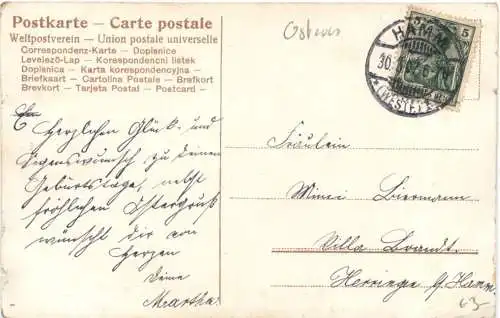 Postkarte – Carte postale
Weltpostverein – Union postale universelle
Correspondenz-Karte – Dopisnice
Levelező-Lap – Korespondencni listek
Dopisnica – Karta korespondencyjna –
Briefkaart – Cartolina Postale – Brefkort
Brevkort – Tarjeta Postal – Postcard –
Ostern
HAMM
30.
(WESTF.)
5
Herzlichen Glück- und
Segenswunsch zu Deinem
Geburtstage, nebst
fröhlichen Ostergruß
wünscht dir von
Herzen
Deine
Martha.
Fräulein
Mimi Biermann
Villa Brandt.
Herringe b/Hamm.
63